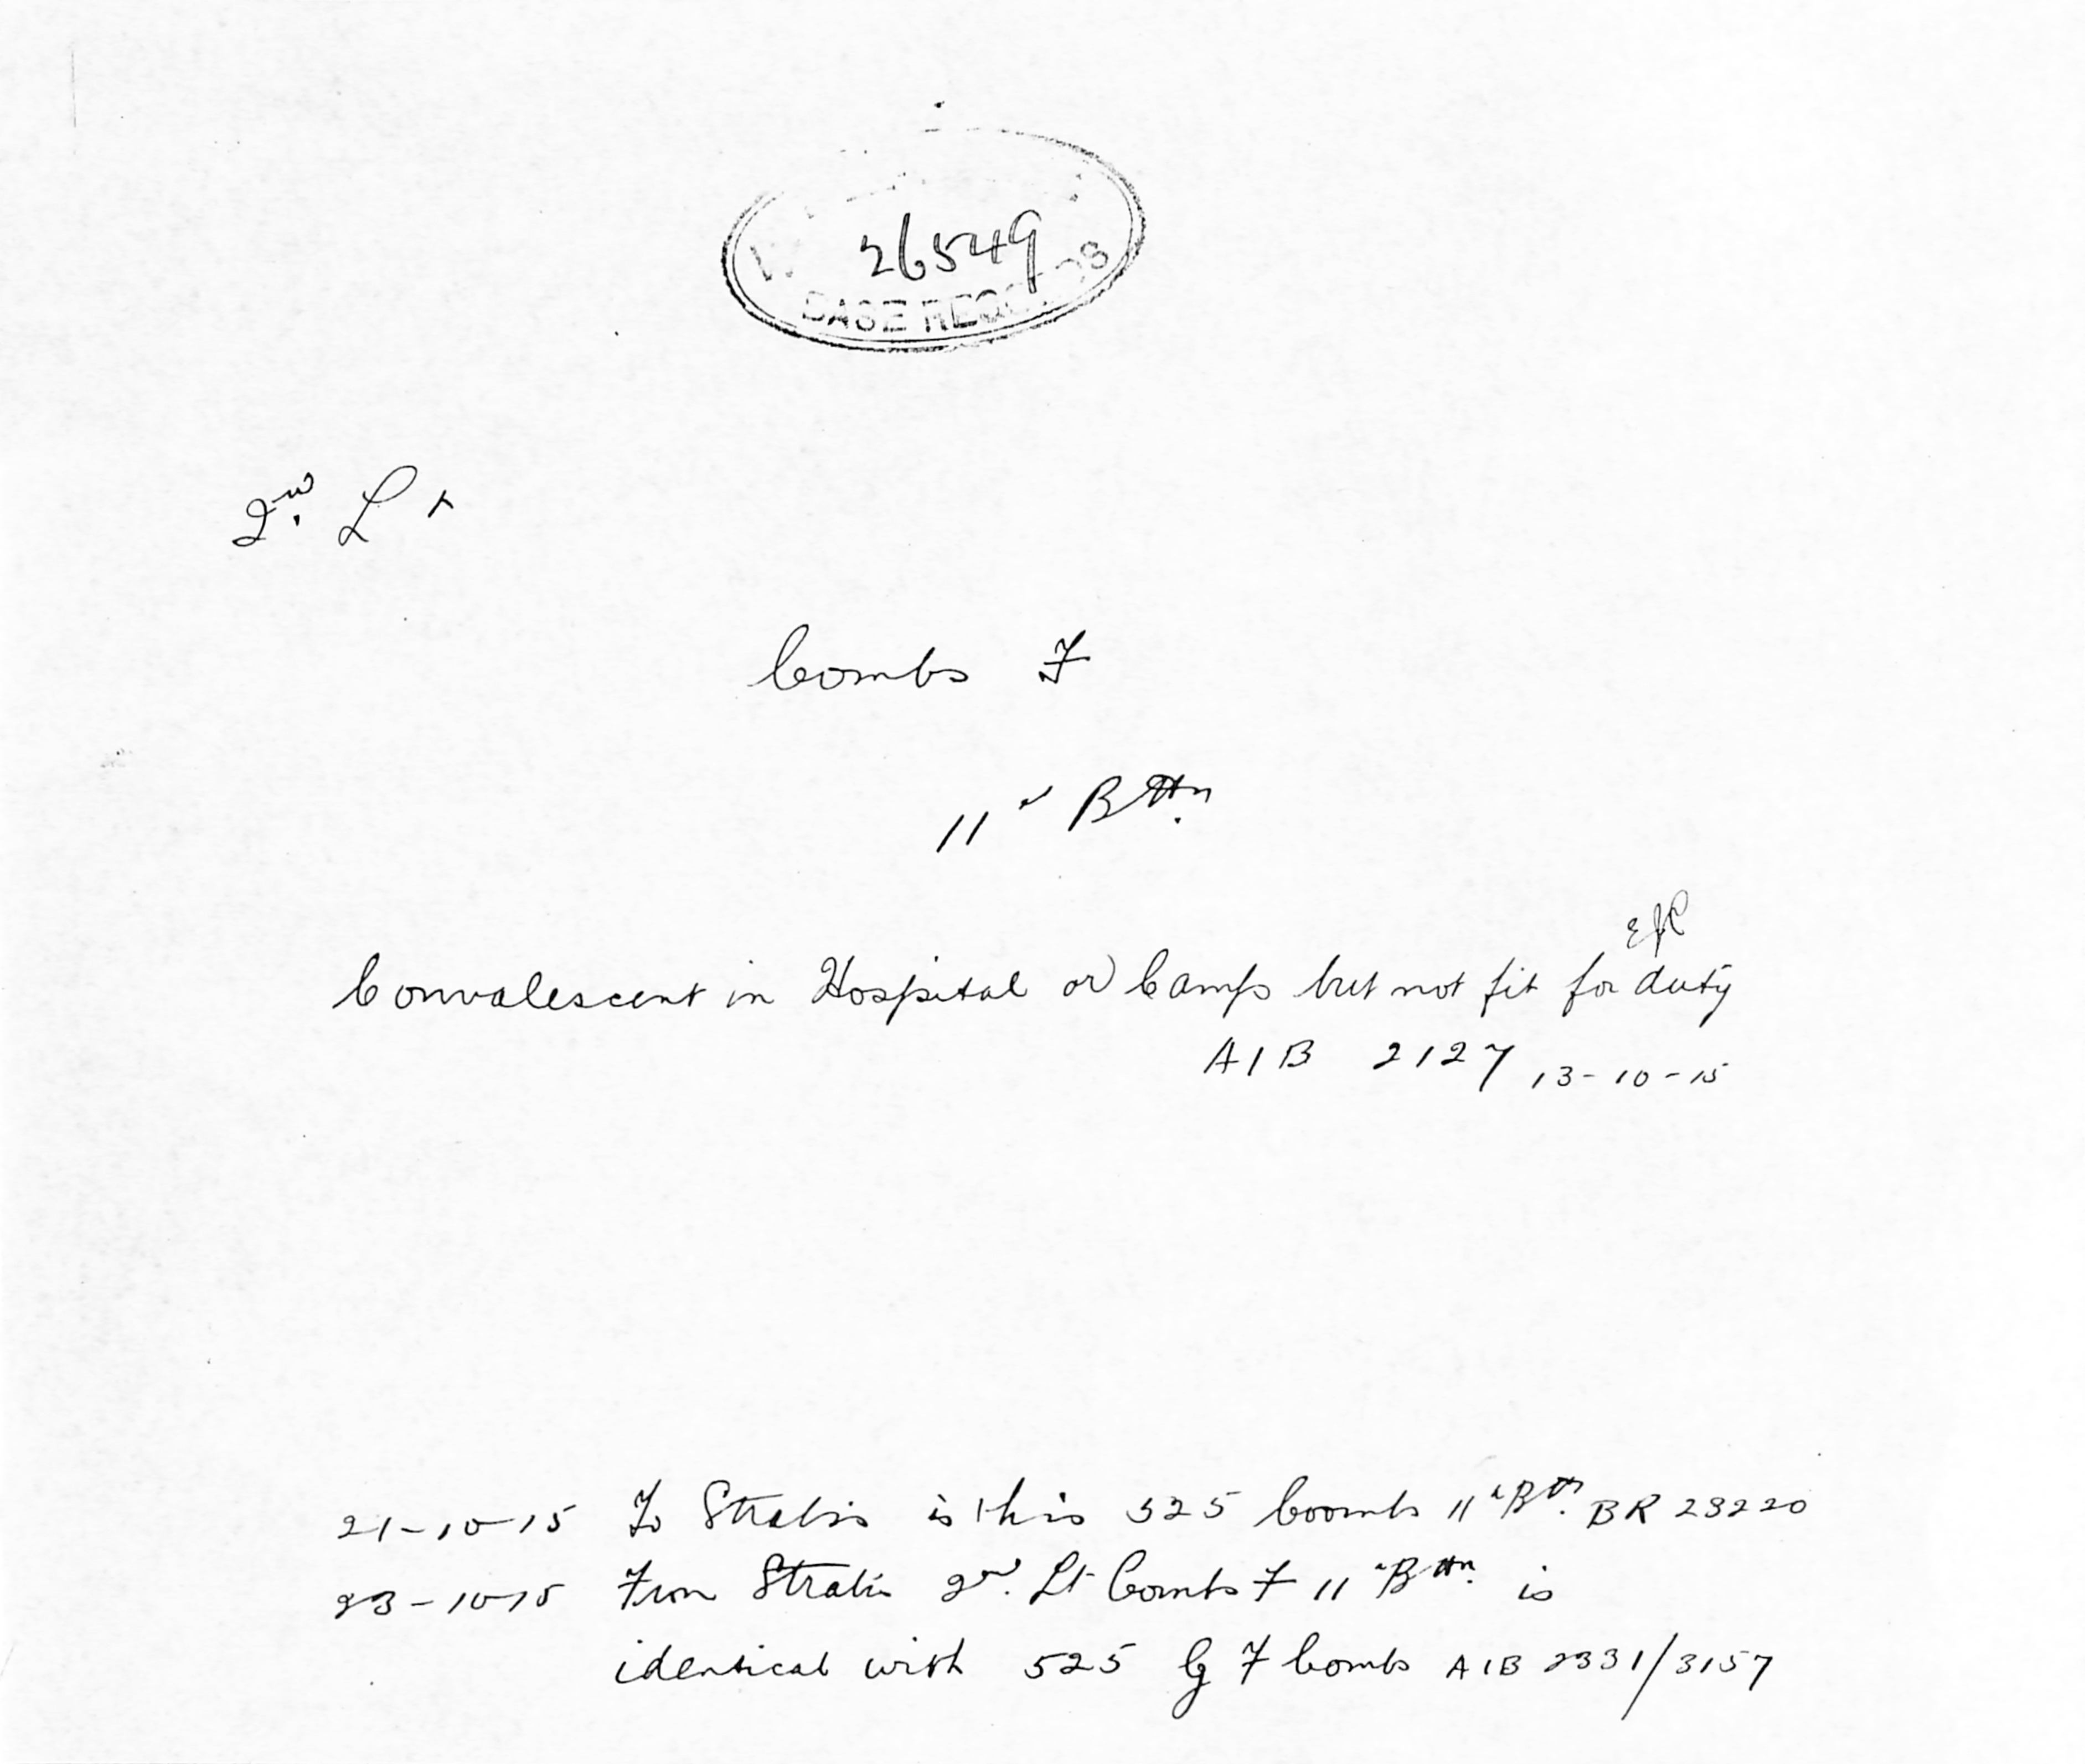 26549
BASE RECORDS
2nd Lt
Combs F
11th Bttn.
Convalescent in Hospital or Camp but not fit for duty
A1B 2127 13-10-15
21-10-15 To Stralis is this 525 Coombs 11th Bttn. BR 23220
23-10-15 From Stralis 2nd. Lt Combs F 11th Bttn. is
identical with 525 G F Combs A1B 2331/3157